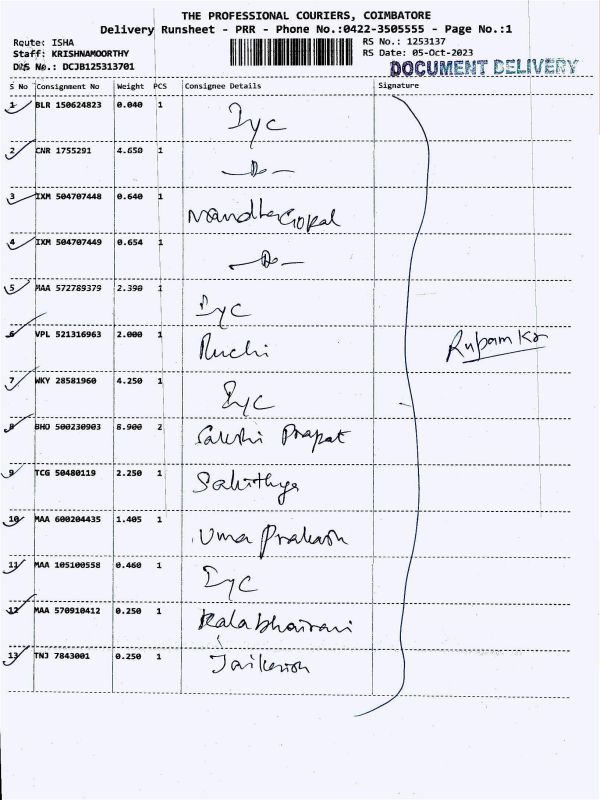 THE PROFESSIONAL COURIERS, COIMBATORE
Delivery Runsheet - PRR - Phone No.:0422-3505555 - Page No.:1
Route: ISHA
Staff: KRISHNAMOORTHY
DRS No.: DCJB125313701
RS No.: 1253137
RS Date: 05-Oct-2023
DOCUMENT DELIVERY
S No Consignment No Weight PCS Consignee Details Signature
1 BLR 150624823 0.040 1 Iyc
2 CNR 1755291 4.650 1 -Do-
3 IXM 504707448 0.640 1 Nandha Gopal
4 IXM 504707449 0.654 1 -Do-
5 MAA 572789379 2.390 1 Iyc
6 VPL 521316963 2.000 1 Ruchi
7 WKY 28581960 4.250 1 Iyc
8 BHO 500230903 8.900 2 Sakshi
9 TCG 50480119 2.250 1 Sahithya
10 MAA 600204435 1.405 1 Uma Prakash
11 MAA 105100558 0.460 1 Iyc
12 MAA 570910412 0.250 1 Kalabhairavi
13 TNJ 7843001 0.250 1
Rupam Kr